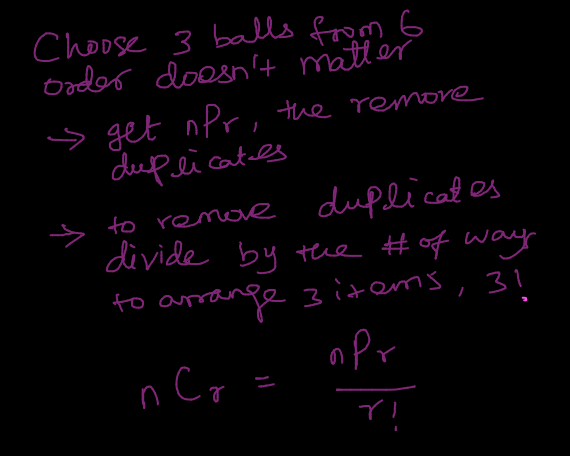 Choose 3 balls from 6
order doesn't matter
→ get nPr, the remove
duplicates
→ to remove duplicates
divide by the # of way
to arrange 3 items, 3!
nCr = nPr / r!